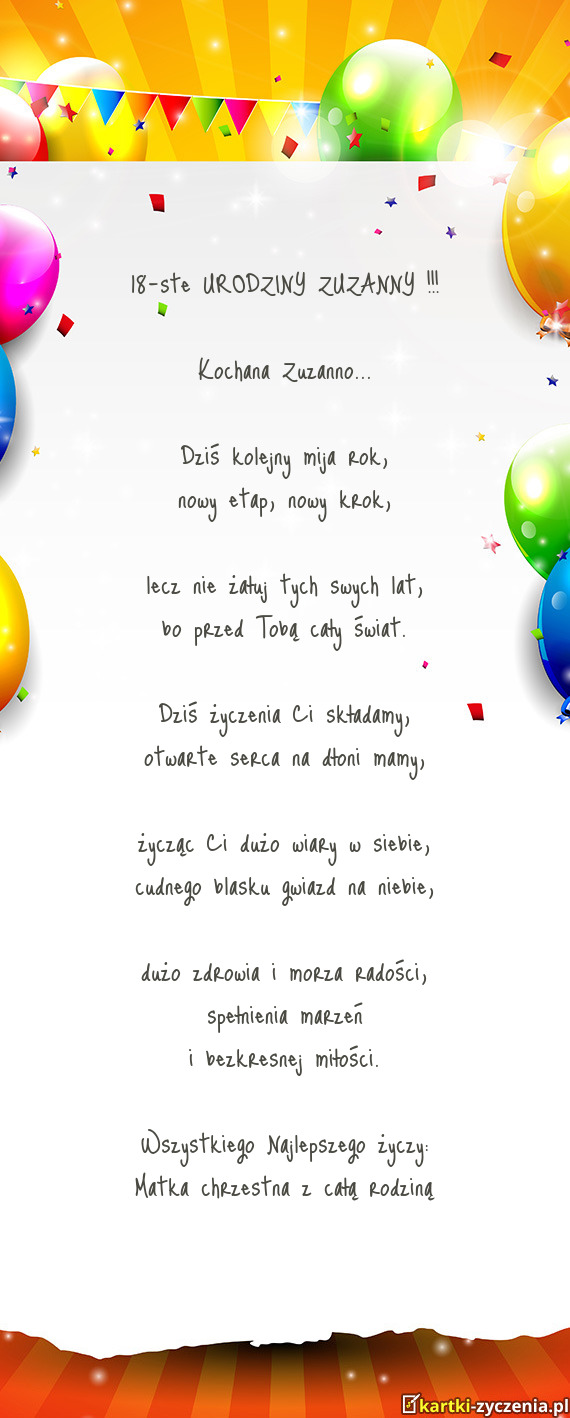 18-ste URODZINY ZUZANNY !!!
Kochana Zuzanno...
Dziś kolejny mija rok,
nowy etap, nowy krok,
lecz nie żałuj tych swych lat,
bo przed Tobą cały świat.
Dziś życzenia Ci składamy,
otwarte serca na dłoni mamy,
życząc Ci dużo wiary w siebie,
cudnego blasku gwiazd na niebie,
dużo zdrowia i morza radości,
spełnienia marzeń
i bezkresnej miłości.
Wszystkiego Najlepszego życzy:
Matka chrzestna z całą rodziną
kartki-zyczenia.pl